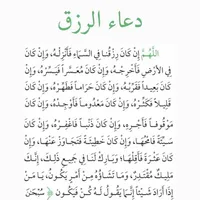 دعاء الرزق
اللَّهُمَّ إِنْ كَانَ رِزْقُنَا فِي السَّمَاءِ فَأَنْزِلْهُ، وَإِنْ كَانَ
فِي الأَرْضِ فَأَخْرِجْهُ، وَإِنْ كَانَ مُعَسَّرًا فَيَسِّرْهُ، وَإِنْ
كَانَ بَعِيدًا فَقَرِّبْهُ، وَإِنْ كَانَ حَرَامًا فَطَهِّرْهُ، وَإِنْ كَانَ
قَلِيلاً فَكَثِّرْهُ، وَإِنْ كَانَ مَعْدُومًا فَأَوْجِدْهُ، وَإِنْ كَانَ
مَوْقُوفاً فَأَجْرِهِ، وَإِنْ كَانَ ذَنْبًا فَاغْفِرْهُ، وَإِنْ كَانَ
سَيِّئَةً فَامْحُهَا، وَإِنْ كَانَ خَطِيئَةً فَتَجَاوَزْ عَنْهَا، وَإِنْ
كَانَ عَثْرَةً فَأَقِلْهَا؛ وَبَارِكْ لَنَا فِي جَمِيعِ ذَلِكَ، إِنَّكَ
مَلِيكٌ مُقْتَدِرٌ، وَمَا تَشَاؤُهُ مِنْ أَمْرٍ يَكُونُ، يَا مَنْ
إِذَا أَرَادَ شَيْئاً إِنَّمَا يَقُولُ لَهُ كُنْ فَيَكُونُ ﴿ سُبْحَنَ